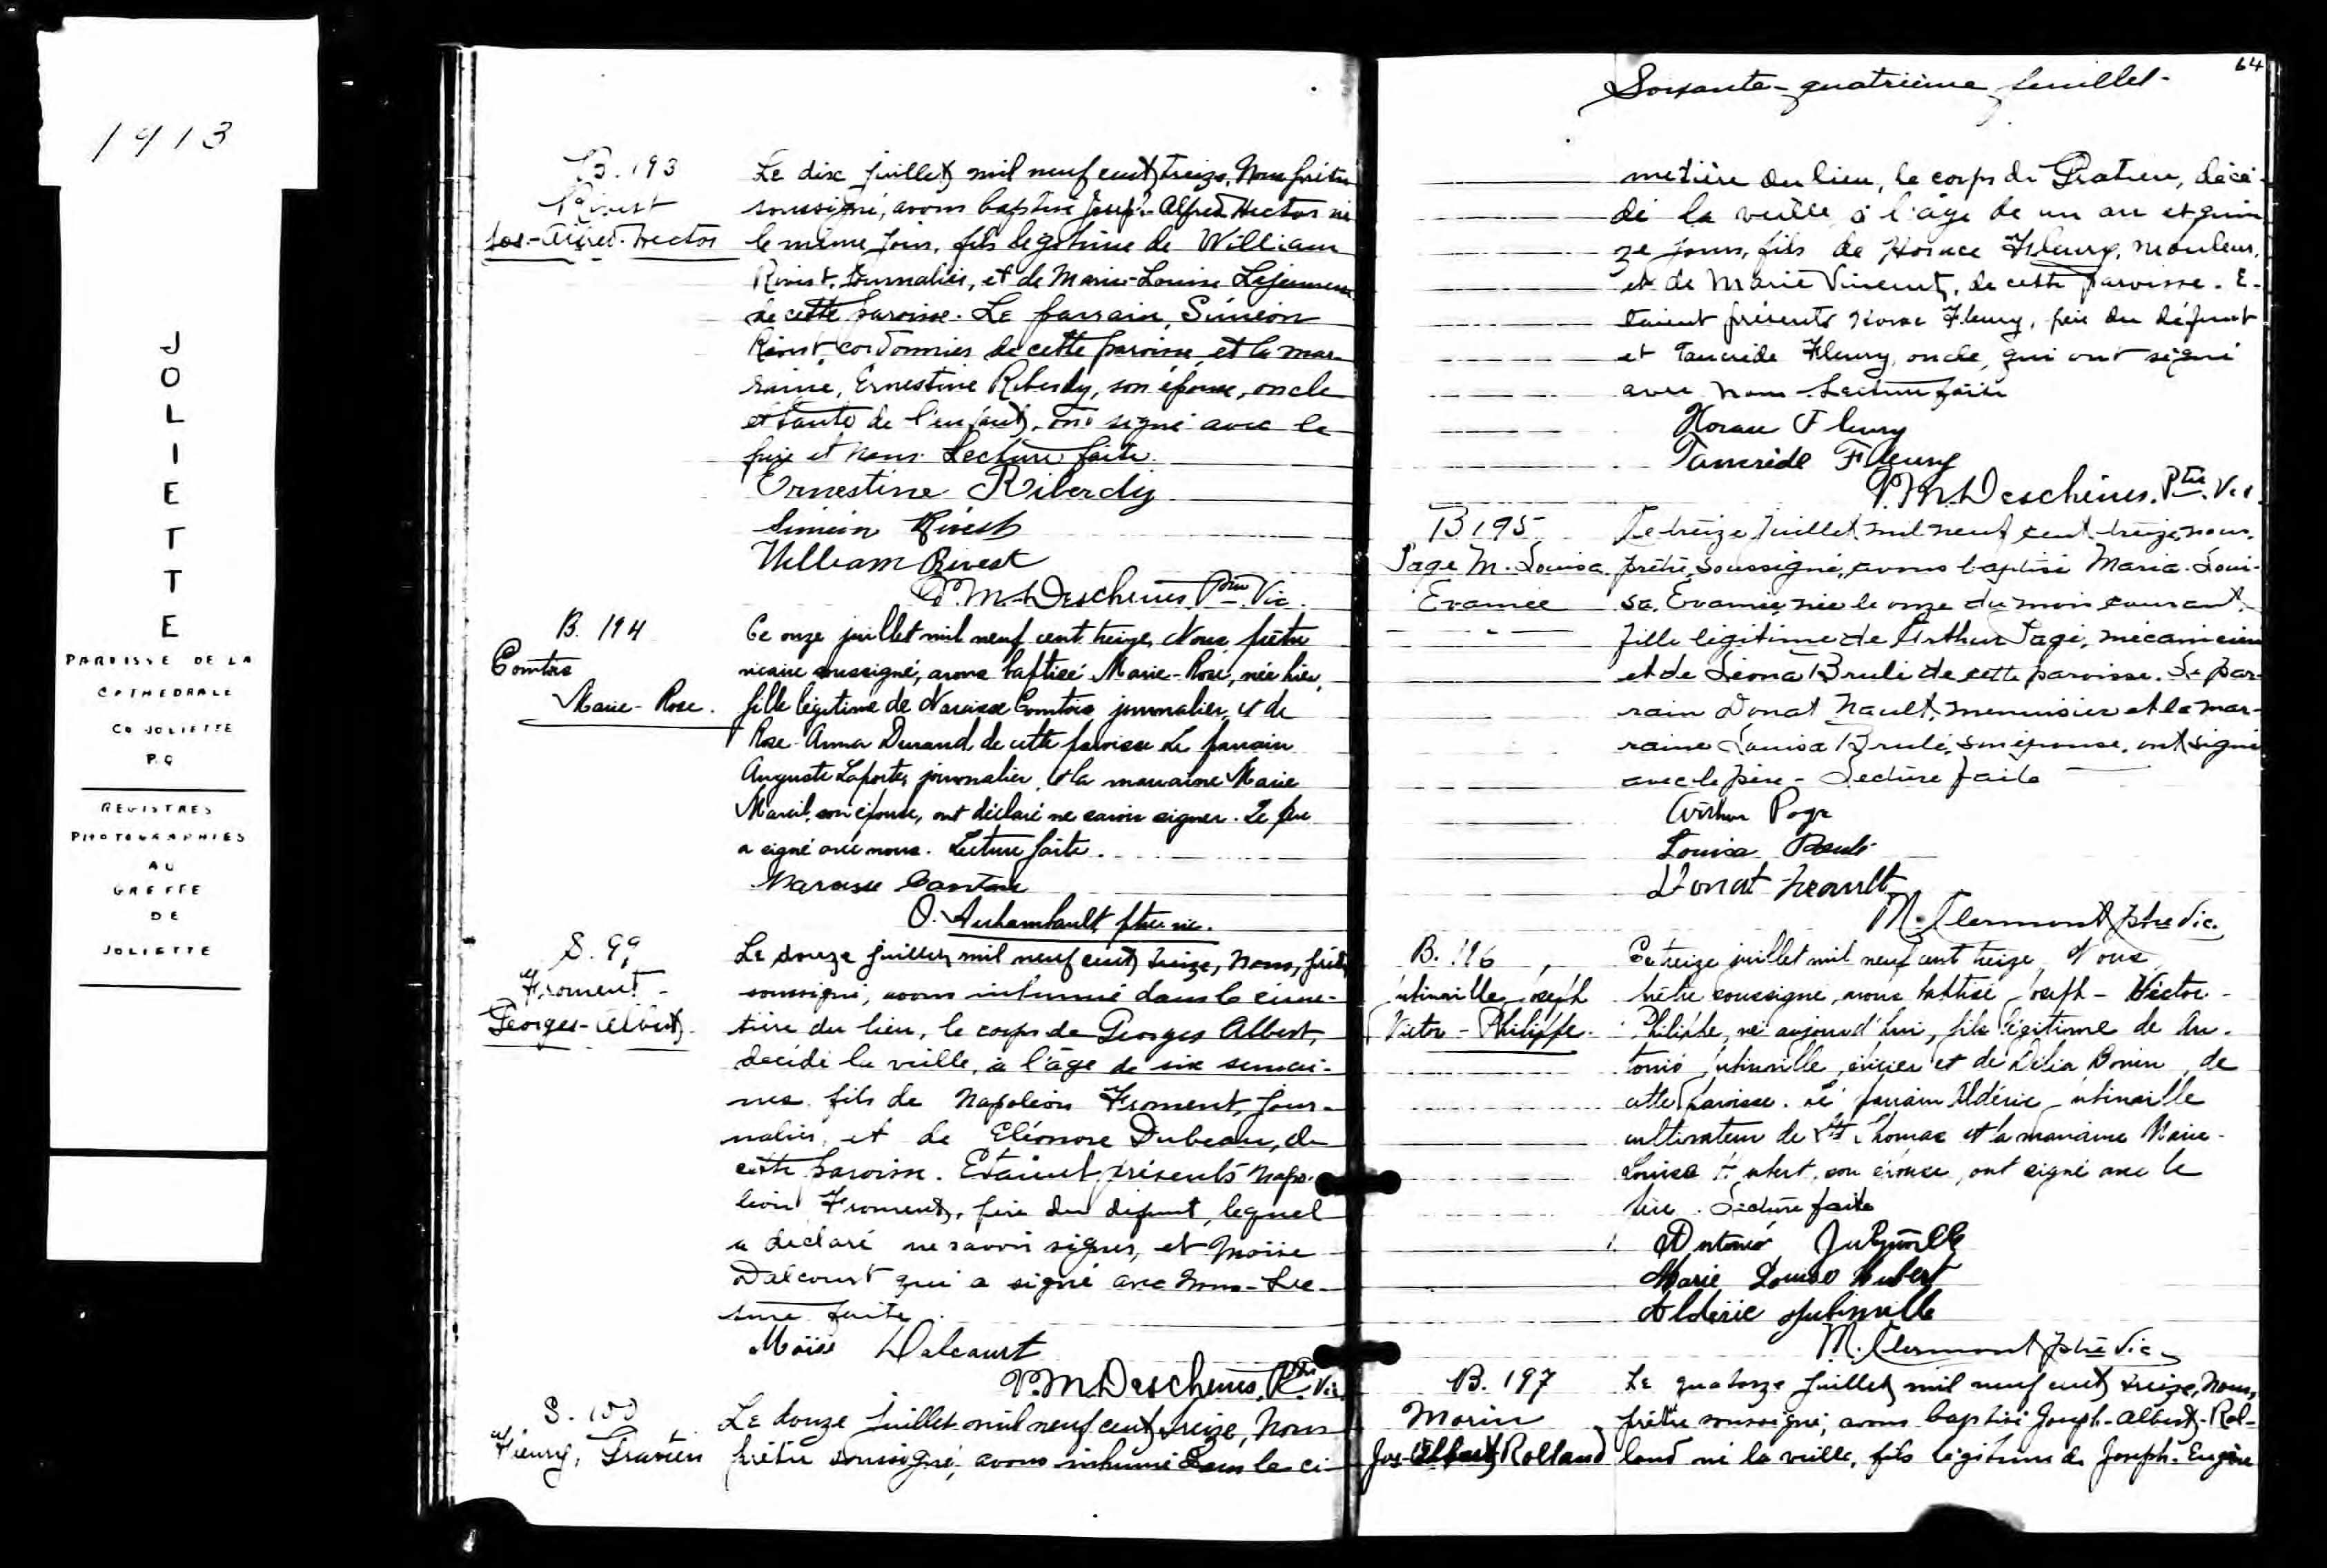 1913
JOLIETTE
PAROISSE DE LA
CATHEDRALE
CO JOLIETTE
P.Q
REGISTRES
PHOTOGRAPHIES
AU
GREFFE
DE
JOLIETTE
B. 193
Rivest
Jos.-Alfred-Hector
Le dix juillet mil neuf cent treize, Nous prêtre
soussigné, avons baptisé Joseph-Alfred Hector né
le même jour, fils légitime de William
Rivest, journalier, et de Marie-Louise Lajeunesse
de cette paroisse. Le parrain, Siméon
Rivest, cordonnier de cette paroisse, et la mar-
raine, Ernestine Riberdy, son épouse, oncle
et tante de l'enfant, ont signé avec le
père et nous. Lecture faite.
Ernestine Riberdy
Siméon Rivest
William Rivest
P.M. Deschênes, Ptre Vic.
B. 194
Comtois
Marie-Rose.
Ce onze juillet mil neuf cent treize, Nous prêtre
vicaire soussigné, avons baptisé Marie-Rose, née hier,
fille légitime de Narcisse Comtois journalier, et de
Rose-Anna Durand de cette paroisse Le parrain
Auguste Laporte, journalier et la marraine Marie
Marcil, son épouse, ont déclaré ne savoir signer. Le père
a signé avec nous. Lecture faite.
Narcisse Comtois
O. Archambault ptre vic.
S. 99
Froment
Georges-Albert.
Le douze juillet mil neuf cent treize, Nous, prêtre
soussigné, avons inhumé dans le cime-
tière du lieu, le corps de Georges Albert,
décédé la veille, à l'âge de six semai-
nes, fils de Napoléon Froment, jour-
nalier, et de Eléonore Dubeau, de
cette paroisse. Etaient présents Napo-
léon Froment, père du défunt, lequel
a déclaré ne savoir signer, et Moïse
Dalcourt qui a signé avec nous - Lec-
ture faite.
Moïse Dalcourt
P.M. Deschênes, Ptre Vic.
S. 100
Fleury, Gratien
Le douze juillet mil neuf cent treize, Nous
prêtre soussigné, avons inhumé dans le ci-
64
Soixante-quatrième feuillet-
metière du lieu, le corps de Gratien, décé-
dé la veille à l'âge de un an et quin
ze jours, fils de Horace Fleury, mouleur,
et de Marie Vincent, de cette paroisse. E-
taient présents Horace Fleury, père du défunt
et Tancrède Fleury, oncle, qui ont signé
avec nous - Lecture faite
Horace Fleury
Tancrède Fleury
P.M. Deschênes. Ptre. Vic.
B 195
Pagé M. Louisa
Evamée
Le treize juillet mil neuf cent treize, nous,
prêtre, soussigné, avons baptisé Maria-Loui-
sa, Evamée, née le onze du mois courant,
fille légitime de Arthur Pagé, mécanicien
et de Léona Brulé de cette paroisse. Le par-
rain Donat Nault, menuisier et la mar-
raine Louisa Brulé, son épouse, ont signé
avec le père - Lecture faite
Arthur Page
Louisa Brulé
Donat Neault
M. Clermont ptre Vic.
B. 196
Jubinville Joseph
Victor-Philippe.
Ce treize juillet mil neuf cent treize, Nous
prêtre soussigné, avons baptisé Joseph-Victor-
Philippe, né aujourd'hui, fils légitime de An-
tonio Jubinville, épicier et de Délia Bonin, de
cette paroisse. Le parrain Aldéric Jubinville
cultivateur de St Thomas et la marraine Marie-
Louise Hubert, son épouse, ont signé avec le
père. Lecture faite
Antonio Jubinville
Marie Louise Hubert
Aldéric Jubinville
M. Clermont ptre Vic.
B. 197
Morin
Jos-Albert, Rolland
Le quatorze juillet mil neuf cent treize, Nous,
prêtre soussigné, avons baptisé Joseph-Albert-Rol-
land né la veille, fils légitime de Joseph-Eugène